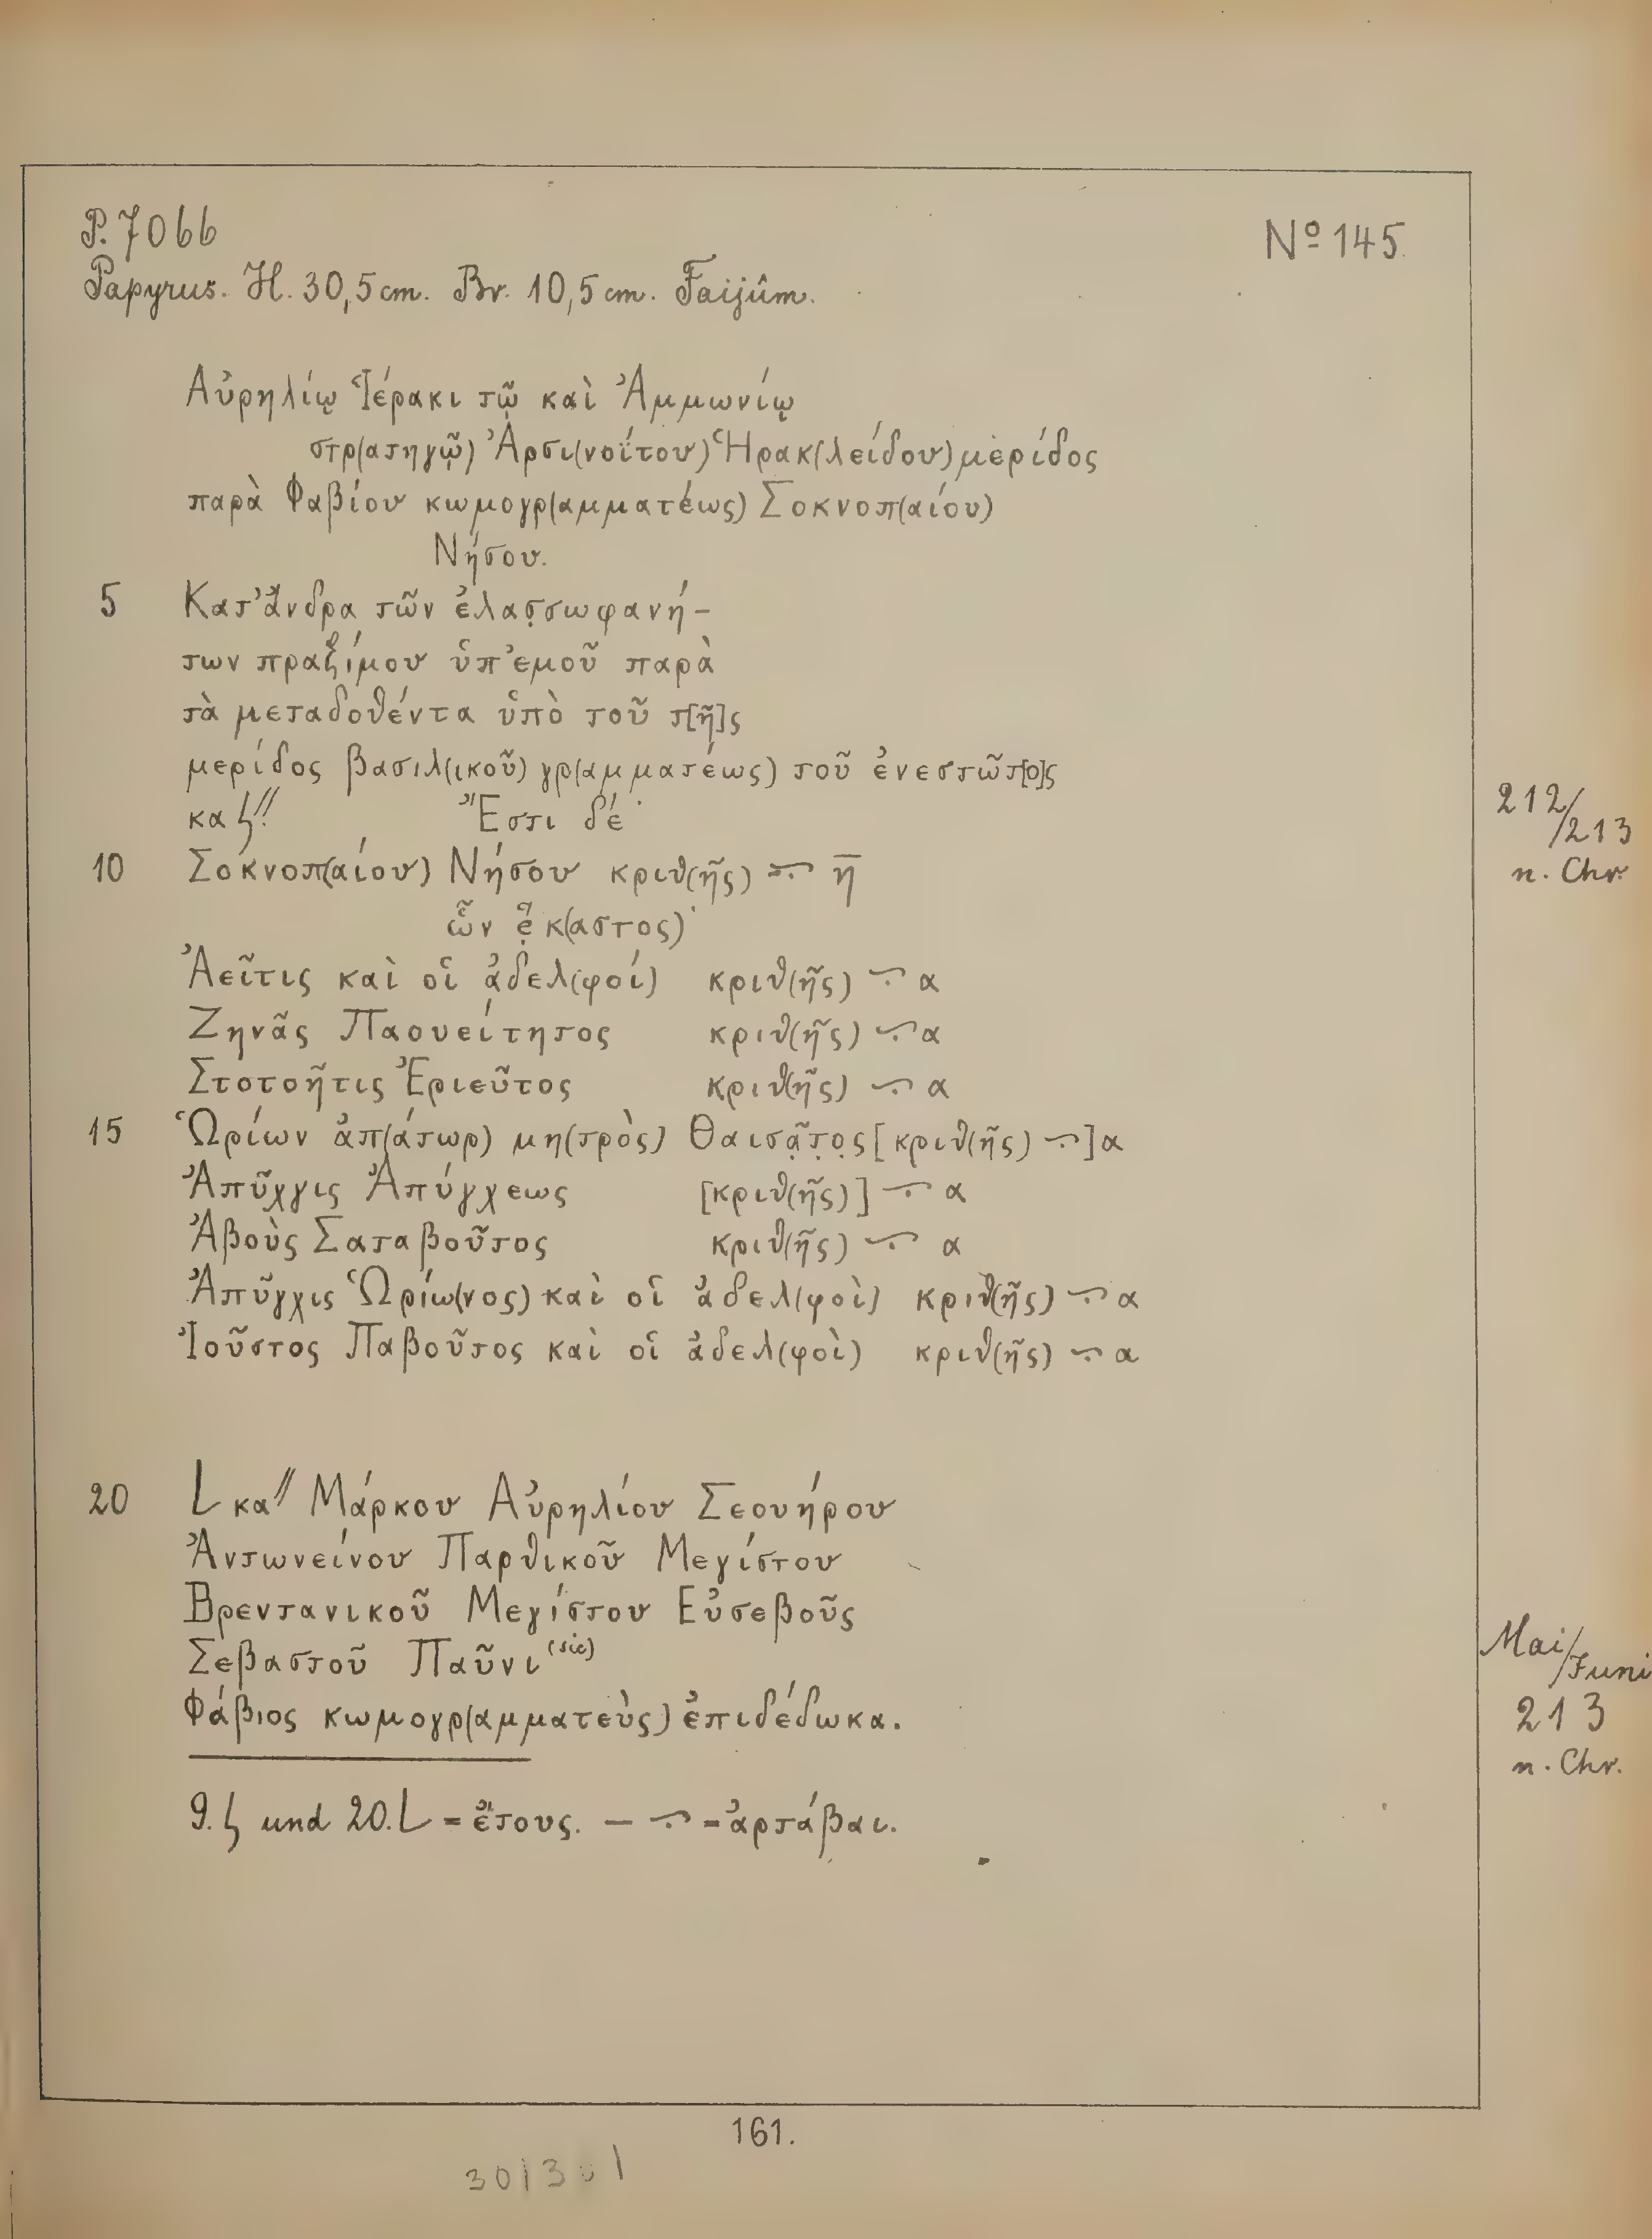 P. 7066
Nº 145.
Papyrus. H. 30,5 cm. Br. 10,5 cm. Faijûm.
Αὐρηλίῳ Ἱέρακι τῷ καὶ Ἀμμωνίῳ
στρ(ατηγῷ) Ἀρσι(νοΐτου) Ἡρακ(λείδου) μερίδος
παρὰ Φαβίου κωμογρ(αμματέως) Σοκνοπ(αίου)
Νήσου.
5 Κατ᾽ἄνδρα τῶν ἐλασ̣σωφανή-
των πραξίμου ὑπ᾽ εμοῦ παρὰ
τὰ μεταδοθέντα ὑπὸ τοῦ τ[ῆ]ς
μερίδος βασιλ(ικοῦ) γρ(αμματέως) τοῦ ἐνεστῶτ[ο]ς
κα ϛ// Ἔστι δέ·
212/213
n. Chr.
10 Σοκνοπ(αίου) Νήσου κριθ(ῆς) ⨪ η̅
ὧν ἕ̣κ(αστος)·
Ἀεῖτις καὶ οἱ ἀ̣δελ(φοί) κριθ(ῆς) ⨪ α
Ζηνᾶς Παουείτητος κριθ(ῆς) ⨪ α
Στοτοῆτις Ἐριεῦτος κριθ(ῆς) ⨪ α
15 Ὡρίων ἀπ(άτωρ) μη(τρὸς) Θαισᾶ̣τ̣ο̣ς [κριθ(ῆς) ⨪] α
Ἀπῦχγις Ἀπύγχεως [κριθ(ῆς)] ⨪ α
Ἀβοὺς Σαταβοῦτος κριθ(ῆς) ⨪ α
Ἀπῦγχις Ὡρίω(νος) καὶ οἱ ἀδελ(φοὶ) κριθ(ῆς) ⨪ α
Ἰοῦστος Παβοῦτος καὶ οἱ ἀδελ(φοὶ) κριθ(ῆς) ⨪ α
20 L κα// Μάρκου Αὐρηλίου Σεουήρου
Ἀντωνείνου Παρθικοῦ Μεγίστου
Βρεντανικοῦ Μεγίστου Εὐσεβοῦς
Σεβαστοῦ Παῦνι (sic)
Φάβιος κωμογρ(αμματεὺς) ἐπιδέδωκα.
Mai/Juni
213
n. Chr.
9. ϛ und 20. L = ἔτους. — ⨪ = ἀρτάβαι.
161.